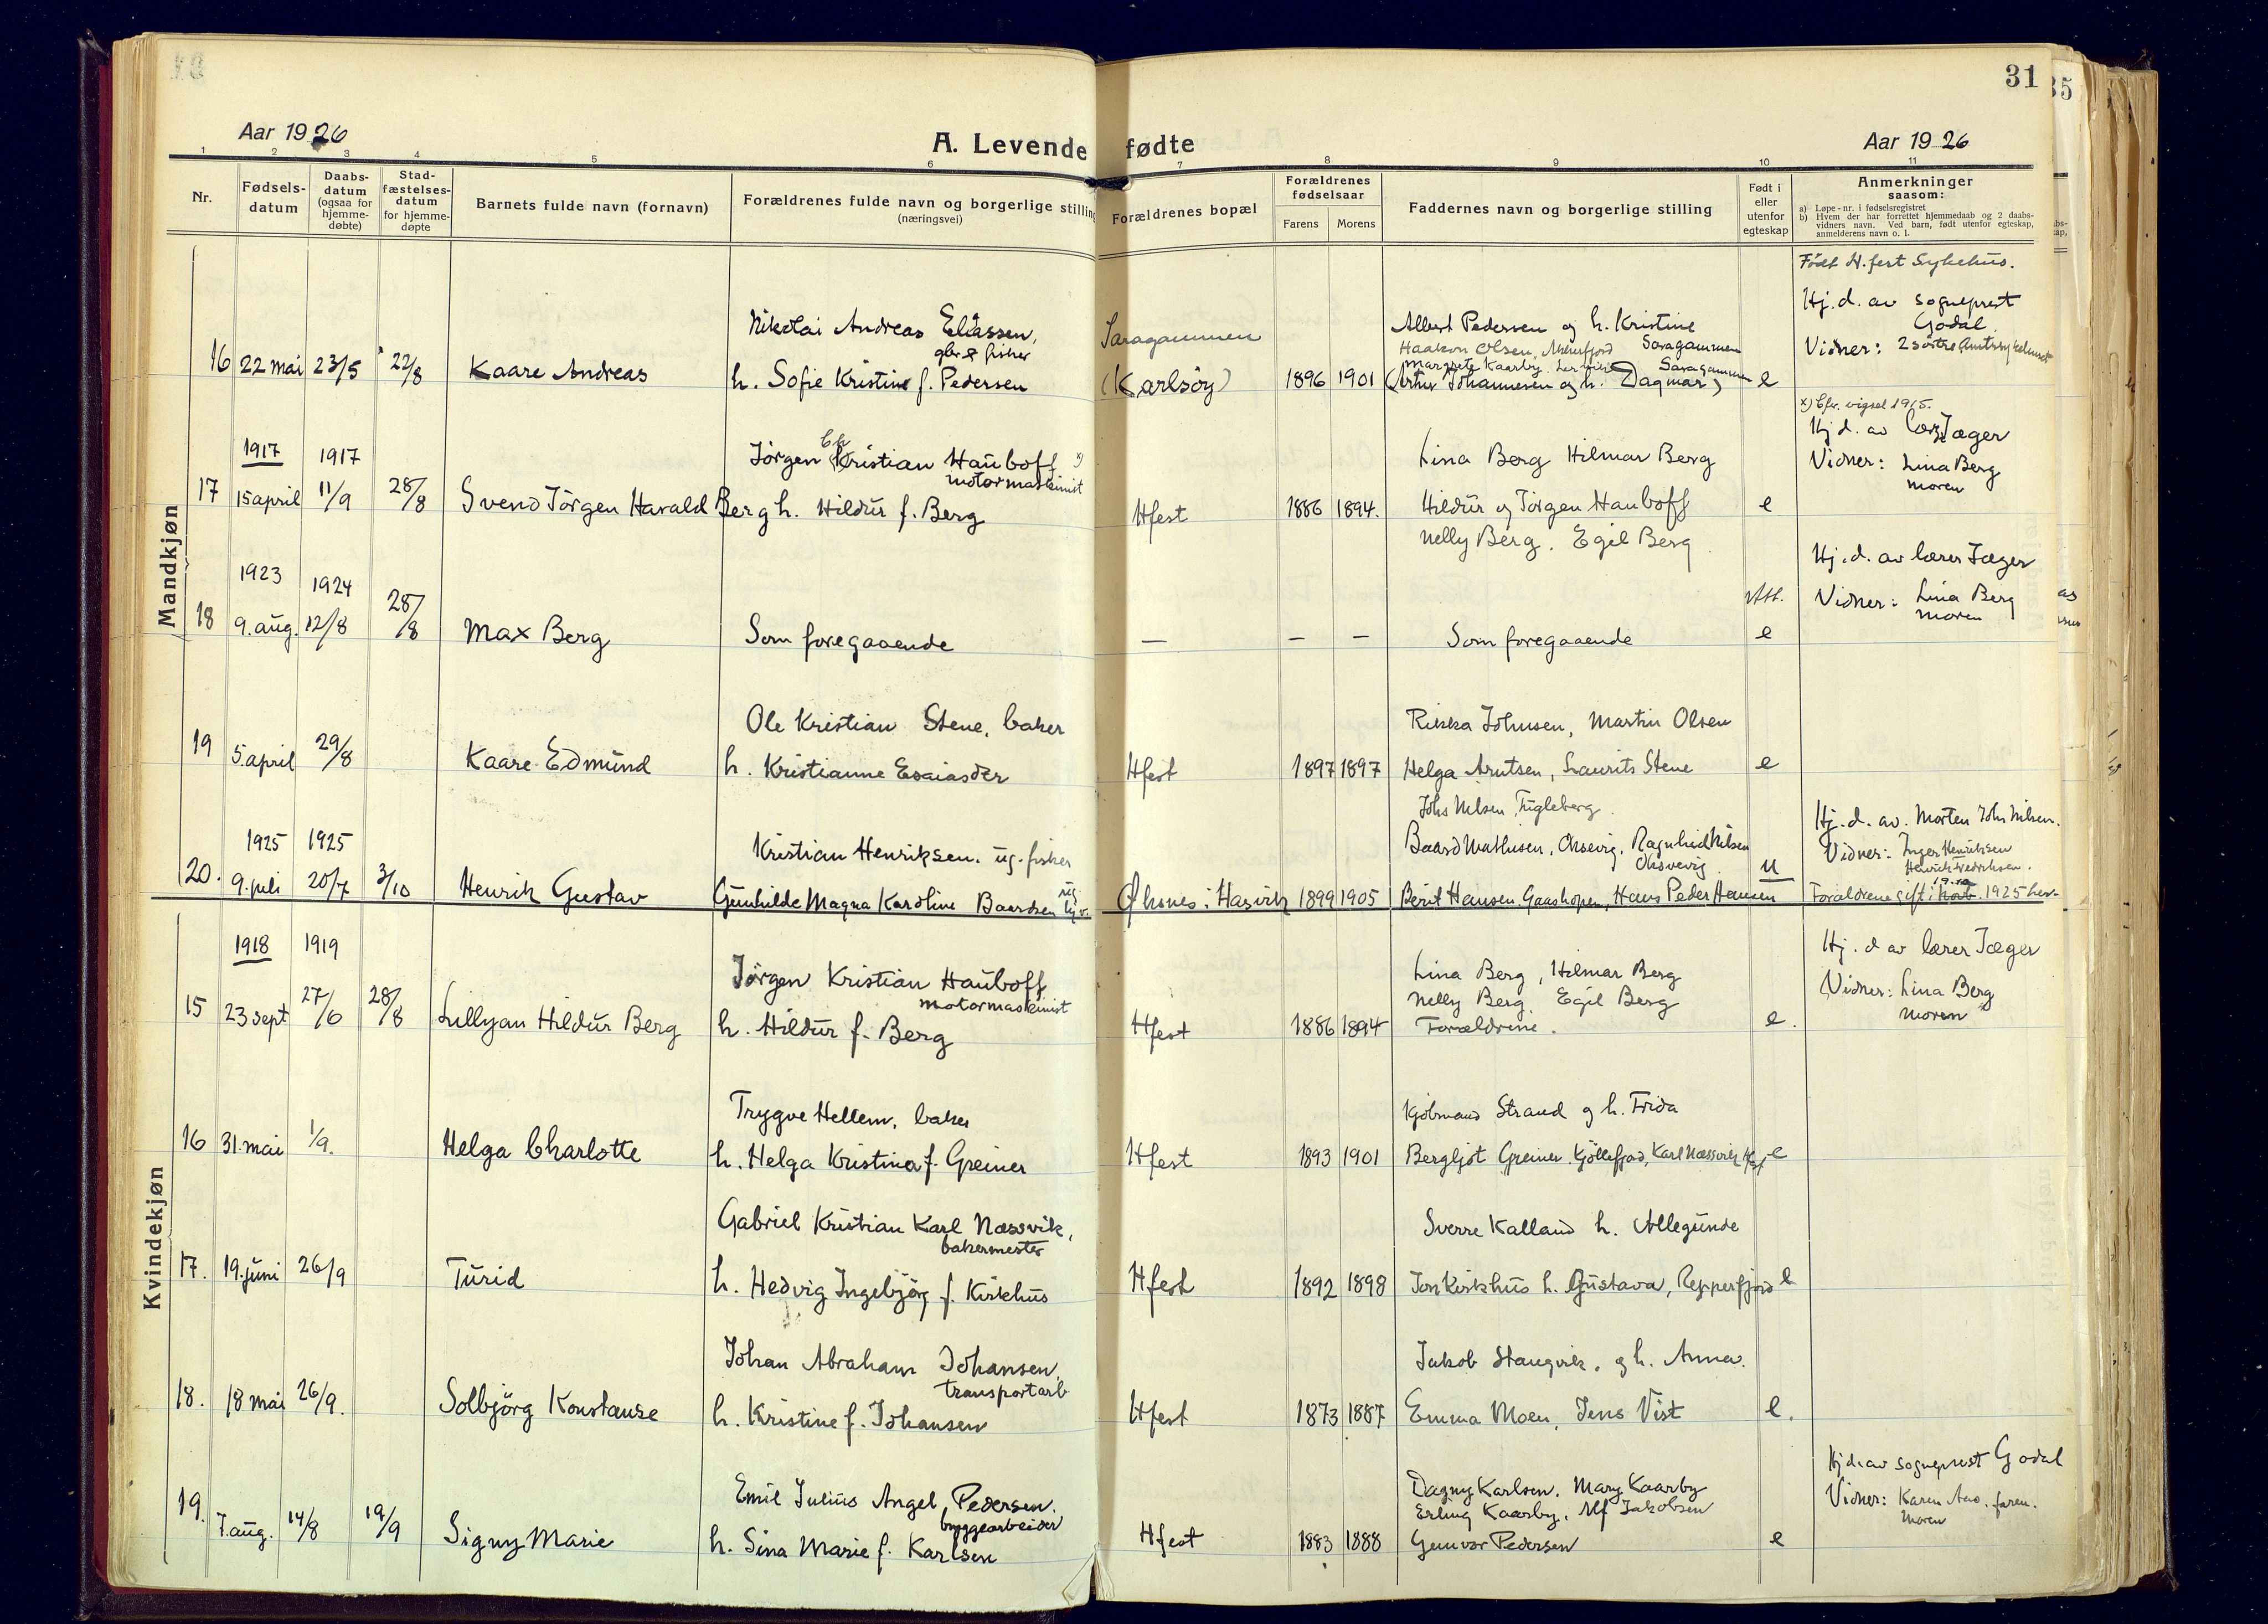 31
Aar 1926
A. Levende fødte
Aar 1926
1 2 3 4 5 6 7 8 9 10 11
Nr.
Fødsels-
datum
Daabs-
datum
(ogsaa for
hjemme-
døbte)
Stad-
fæstelses-
datum
for hjemme-
døpte
Barnets fulde navn (fornavn)
Forældrenes fulde navn og borgerlige stilling
(næringsvei)
Forældrenes bopæl
Forældrenes
fødselsaar
Farens
Morens
Faddernes navn og borgerlige stilling
Født i
eller
utenfor
egteskap
Anmerkninger
saasom:
a) Løpe-nr. i fødselsregistret
b) Hvem der har forrettet hjemmedaab og 2 daabs-
vidners navn. Ved barn, født utenfor egteskap,
anmelderens navn o. l.
Mandkjøn
16 22 mai 23/5 22/8 Kaare Andreas
Nikolai Andreas Eliassen,
gbr & fisker
h. Sofie Kristine f. Pedersen
Saragammen
(Karlsöy)
1896 1901
Albert Pedersen og h. Kristine
Saragammen
Haakon Olsen,
Margrete Kaarby
Saragammen
(Artur Johannesen og h. Dagmar)
e
Født H.fest Sykehus.
Hj. d. av sogneprest
Godal.
Vidner: 2 söstre Amtssykehuset
17 1917 15 april 1917 11/9 28/8 Svend Jörgen Harald Berg
Jörgen Kristian Hauboff x)
Ch
motormaskinist
h. Hildur f. Berg
Hfest
1886 1894.
Lina Berg Hilmar Berg
Hildur og Jörgen Hauboff
Nelly Berg. Egil Berg.
e
x) Cfr. vigsel 1915.
Hj. d. av lærer Jæger
Vidner: Lina Berg
moren
18 1923 9. aug. 1924 12/8 28/8 Max Berg
Som foregaaende
— — —
Som foregaaende
e
Hj. d. av lærer Jæger
Vidner: Lina Berg
moren
19 5. april 29/8 Kaare Edmund
Ole Kristian Stene, baker
h. Kristianne Esaiasder
Hfest
1897 1897
Rikka Johnsen, Martin Olsen
Helga Arntsen, Laurits Stene
e
20. 1925 9. juli 1925 20/7 3/10 Henrik Gustav
Kristian Henriksen. ug. fisker
Gunhilde Magna Karoline Baardsen ug. tj.
Øksnes i Hasvik
1899 1905
Johs Nilsen, Fugleberg.
Baard Mathisen, Oksevig, Ragnhild Nilsen
Oksevig
Berit Hansen. Gaashopen, Hans Peder Hansen
u
Hj. d. av. Morten Johs Nilsen.
Vidner: Inger Henriksen
Henrik Fredriksen.
Forældrene gift i 1925 her.
Kvindekjøn
15 1918 23 sept 1919 27/6 28/8 Lillyan Hildur Berg
Jörgen Kristian Hauboff
motormaskinist
h. Hildur f. Berg
Hfest
1886 1894
Lina Berg, Hilmar Berg
Nelly Berg. Egil Berg
Forældrene.
e.
Hj. d av lærer Jæger
Vidner: Lina Berg
moren
16 31. mai 1/9. Helga Charlotte
Trygve Hellem, baker
h. Helga Kristina f. Greiner
Hfest
1893 1901
Kjöbmand Strand og h. Frida
Bergljot Greiner Kjöllefjord, Karl Næssvik Hf.
e
17. 19. juni 26/9 Turid
Gabriel Kristian Karl Næssvik,
bakermester
h. Hedvig Ingebjörg f. Kirkhus
Hfest
1892 1898
Sverre Kalland h. Allegunde
Jon Kirkhus h. Gustava, Repperfjord
e
18. 18 mai 26/9. Solbjörg Konstanse
Johan Abraham Johansen,
transportarb
h. Kristine f. Johansen
Hfest
1873 1887
Jakob Stangvik. og h. Anna.
Emma Moen, Jens Vist
e.
19. 7. aug. 14/8 19/9 Signy Marie
Emil Julius Angel Pedersen.
bryggearbeider
h. Sina Marie f. Karlsen
Hfest
1883 1888
Dagny Karlsen, Mary Kaarby
Erling Kaarby, Alf Jakobsen
Gunvor Pedersen
e
Hj d. av sogneprest Godal
Vidner: Karen Aas. faren.
Moren